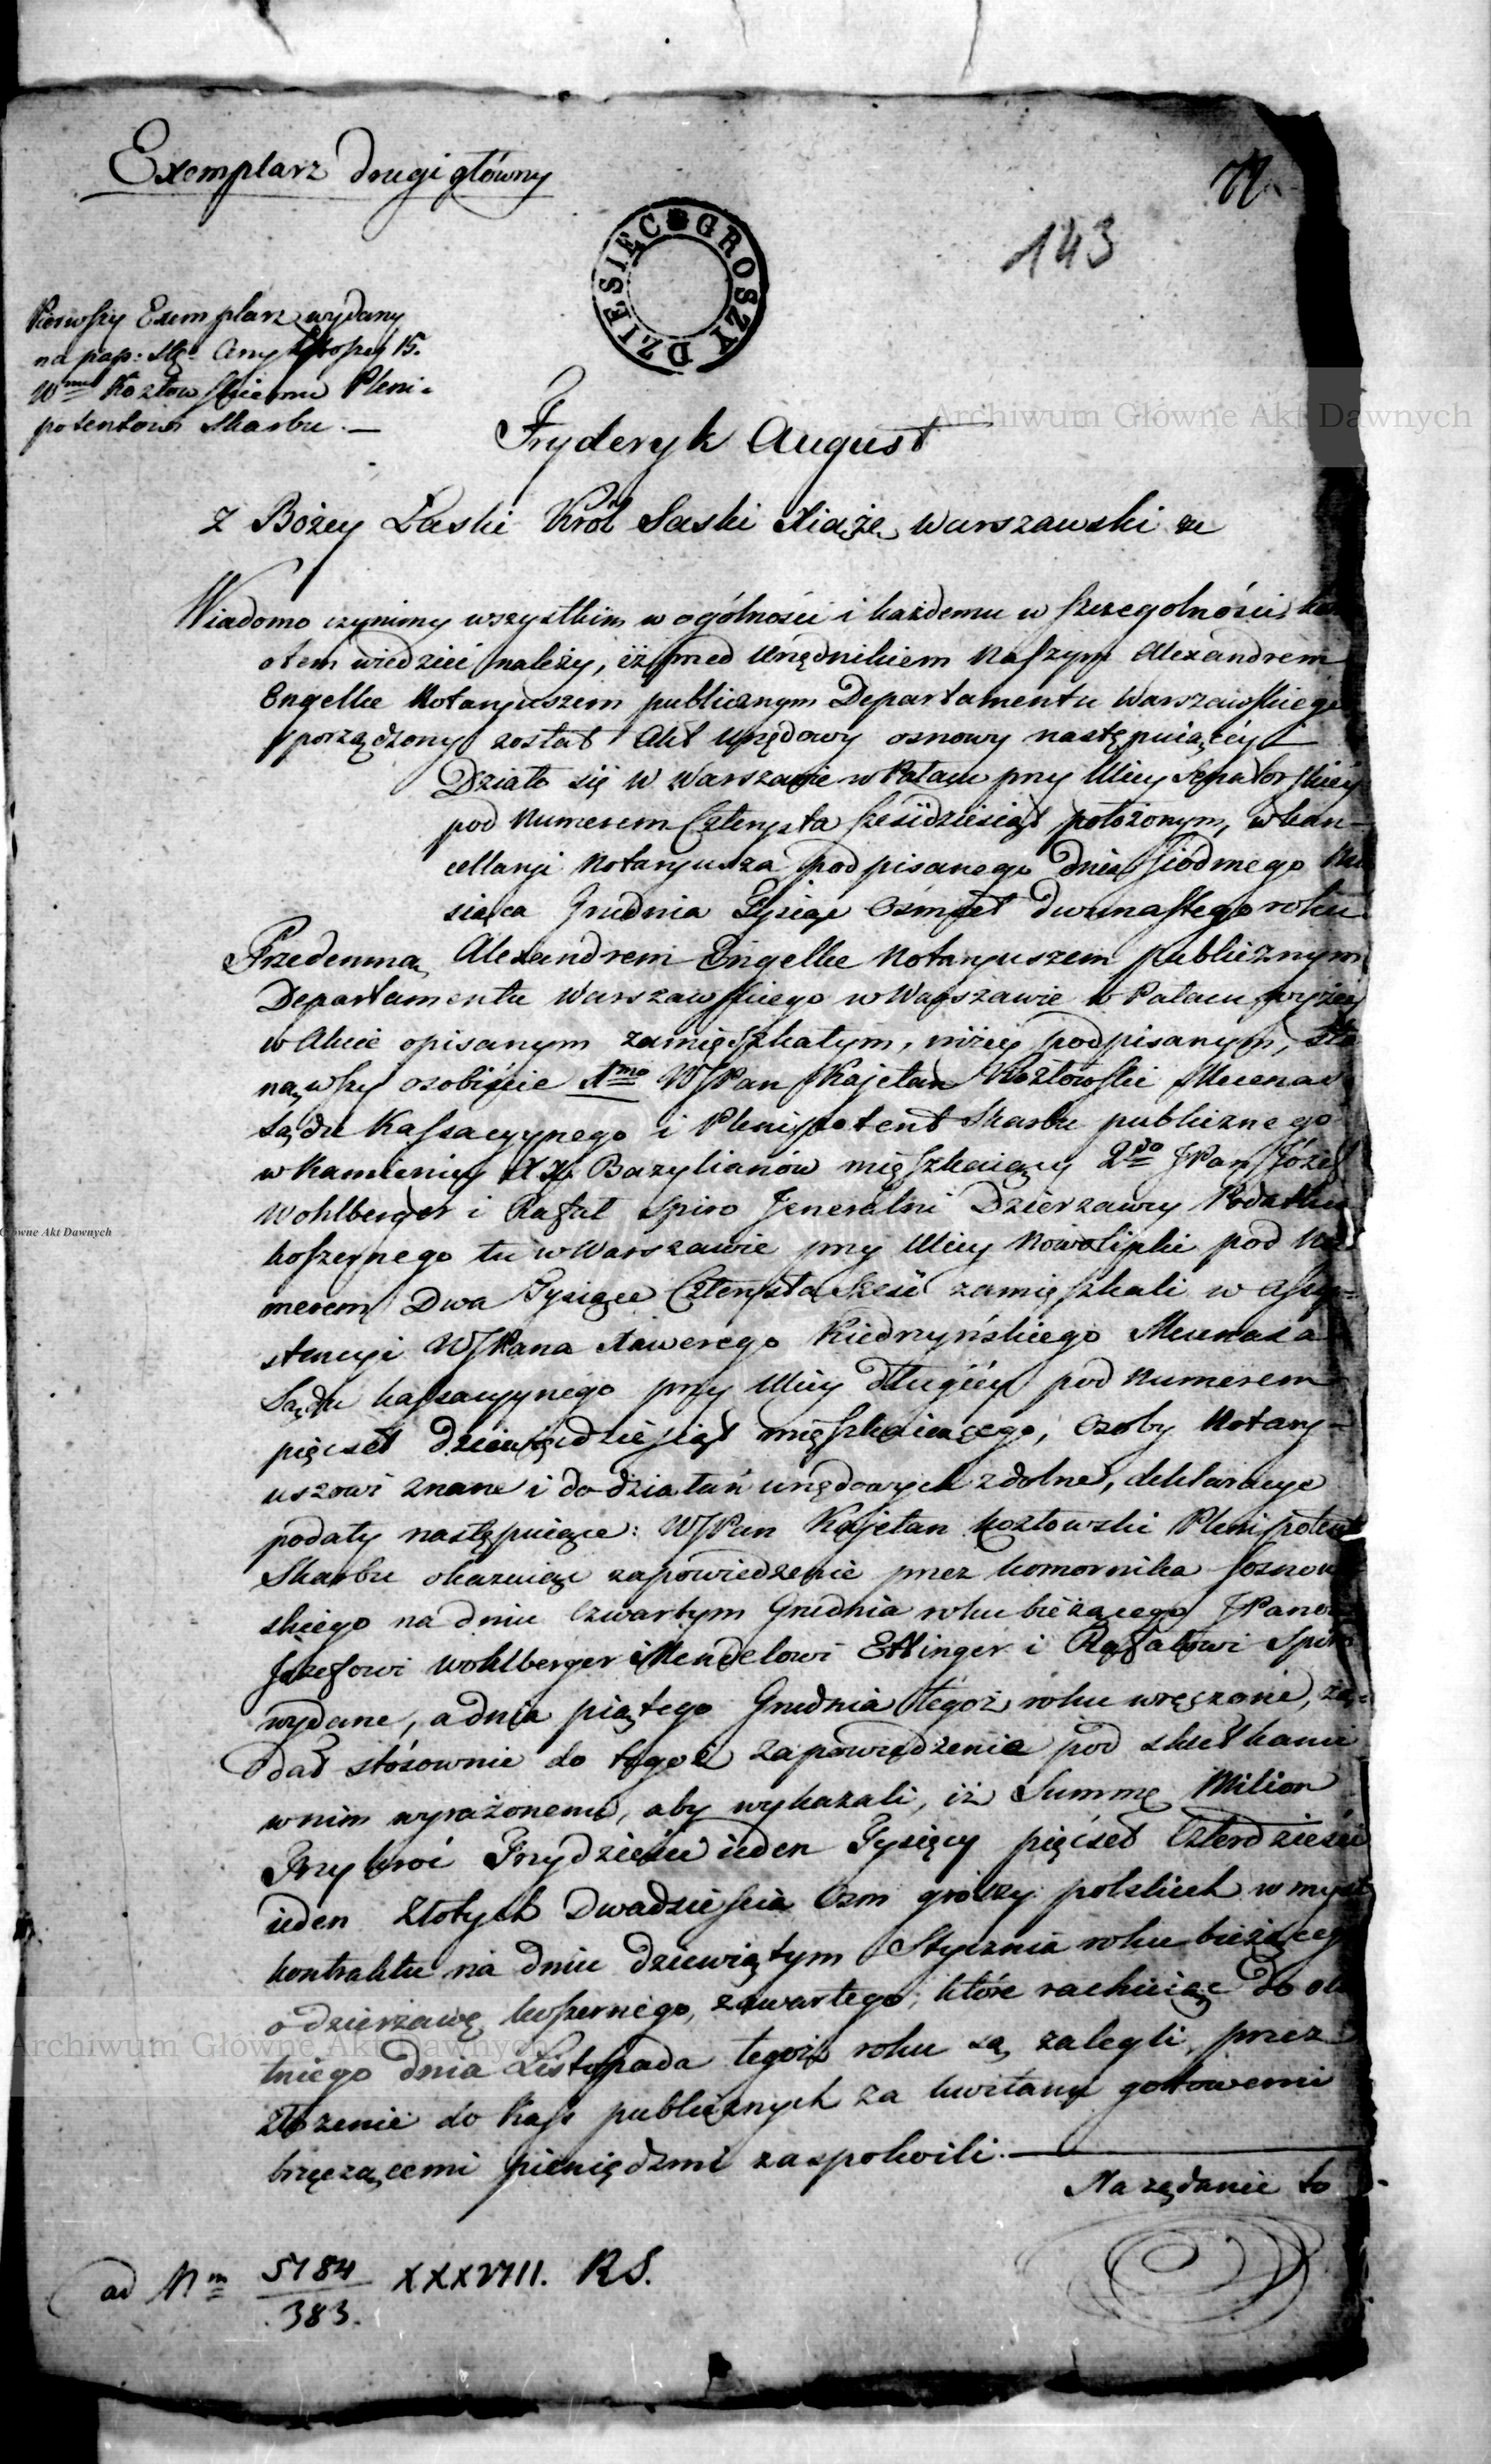 Exemplarz drugi główny
143
DZIESIĘC GROSZY
Pierwszy Exemplarz wydany
na pap: Stę: Ceny groszy 15.
Wmu Kozłowskiemu Pleni-
potentowi Skarbu. —
Fryderyk August
z Bożey Łaski Król Saski Xiąże Warszawski &c
Wiadomo czynimy wszystkim w ogólności i każdemu w szczególności,
otem wiedzieć należy, iż przed Urzędnikiem Naszym Alexandrem
Engelke Notaryuszem publicznym Departamentu Warszawskiego
sporządzony został Akt Urzędowy osnowy następuiącéy —
Działo się w Warszawie w Pałacu przy Ulicy Senatorskiéy
pod Numerem Czterysta sześćdziesiąt położonym, w kan-
cellaryi Notaryusza podpisanego dnia siódmego Mie
siąca Grudnia Tysiąc Ośmset dwunastego roku
Przedemną Alexandrem Engelke Notaryuszem publicznym
Departamentu Warszawskiego w Warszawie w Pałacu wyżéy
w Akcie opisanym zamięszkałym, niżéy podpisanym, sta
nąwszy osobiście 1mo WJPan Kajetan Kozłowski Mecenas
Sądu Kassacyynego i Plenipotent Skarbu publicznego
w Kamienicy XX. Bazylianów mięszkaiący 2do JPan Józef
Wohlberger i Rafał Spiro Jeneralni Dzierzawcy Podatku
koszernego tu w Warszawie przy Ulicy Nowolipki pod Nu
merem Dwa Tysiące Czterysta Sześć zamięszkali w Assy-
stencyi WJPana Xawerego Kiedrzyńskiego Mecenasa
Sądu kassacyynego przy Ulicy długiéy pod Numerem
pięćset dziewięćdziesiąt mięszkaiącego, Osoby Notary-
uszowi znane i do działań urzędowych zdolne, deklaracye
podały następuiące: WJPan Kajetan Kozłowski Plenipotent
Skarbu okazuiąc zapowiedzenie przez komornika Sosnow
skiego na dniu czwartym Grudnia roku bieżącego JPanom
Józefowi Wohlberger i Mendelowi Ettinger i Rafałowi Spiro
wydane, a dnia piątego Grudnia tégoż roku wręczone, żą-
dał stósownie do tegoż zapowiedzenia pod skutkami
w nim wyrażonemi, aby wykazali, iż Summę Milion
Trzykroć Trzydzieści ieden Tysięcy pięćset Czterdzieści
ieden Złotych Dwadzieścia Osm groszy polskich w myśl
kontraktu na dniu dziewiątym Stycznia roku bieżącego
o dzierzawę koszernego, zawartego, które rachuiąc do osta
tniego dnia Listopada tegoż roku są zalegli, przez
złożenie do Kass publicznych za kwitami gotowemi
brzęczącemi pieniędzmi zaspokoili. —
Na żądanie to
ad Nm 5184/383. XXXVIII. R S.
Archiwum Główne Akt Dawnych
Główne Akt Dawnych
Archiwum Główne Akt Dawnych